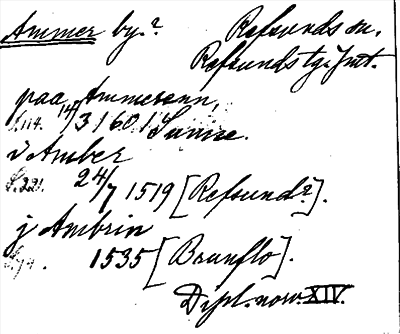 Ammer by.? Refsunds sn.
Refsunds tg. Jmt.
paa Ammerenn,
S. 114. 14/3 1601 Sunise.
i Amber
S. 221. 24/7 1519 [Refsund?].
j Ambrin
1535 [Brunflo].
Dipl. norv. XIV.